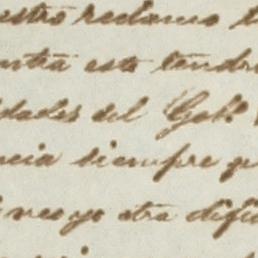 estro reclamo
ntra esto tendr
dades del Gob.º
ncia siempre p
veo yo otra difi